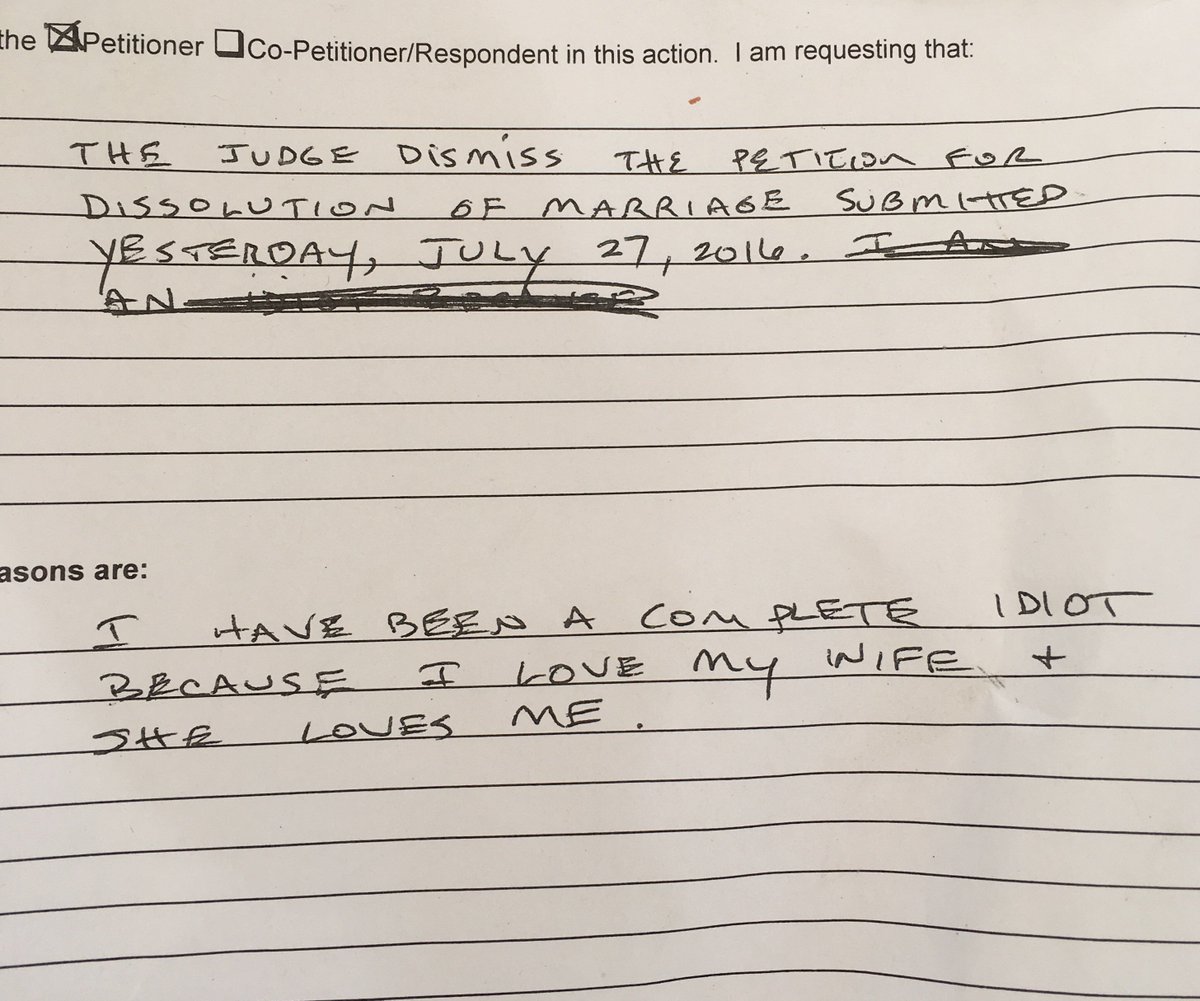 the ☒Petitioner ☐Co-Petitioner/Respondent in this action. I am requesting that:
THE JUDGE DISMISS THE PETITION FOR
DISSOLUTION OF MARRIAGE SUBMITTED
YESTERDAY, JULY 27, 2016. I AM
AN IDIOT BECAUSE
asons are:
I HAVE BEEN A COMPLETE IDIOT
BECAUSE I LOVE MY WIFE +
SHE LOVES ME.